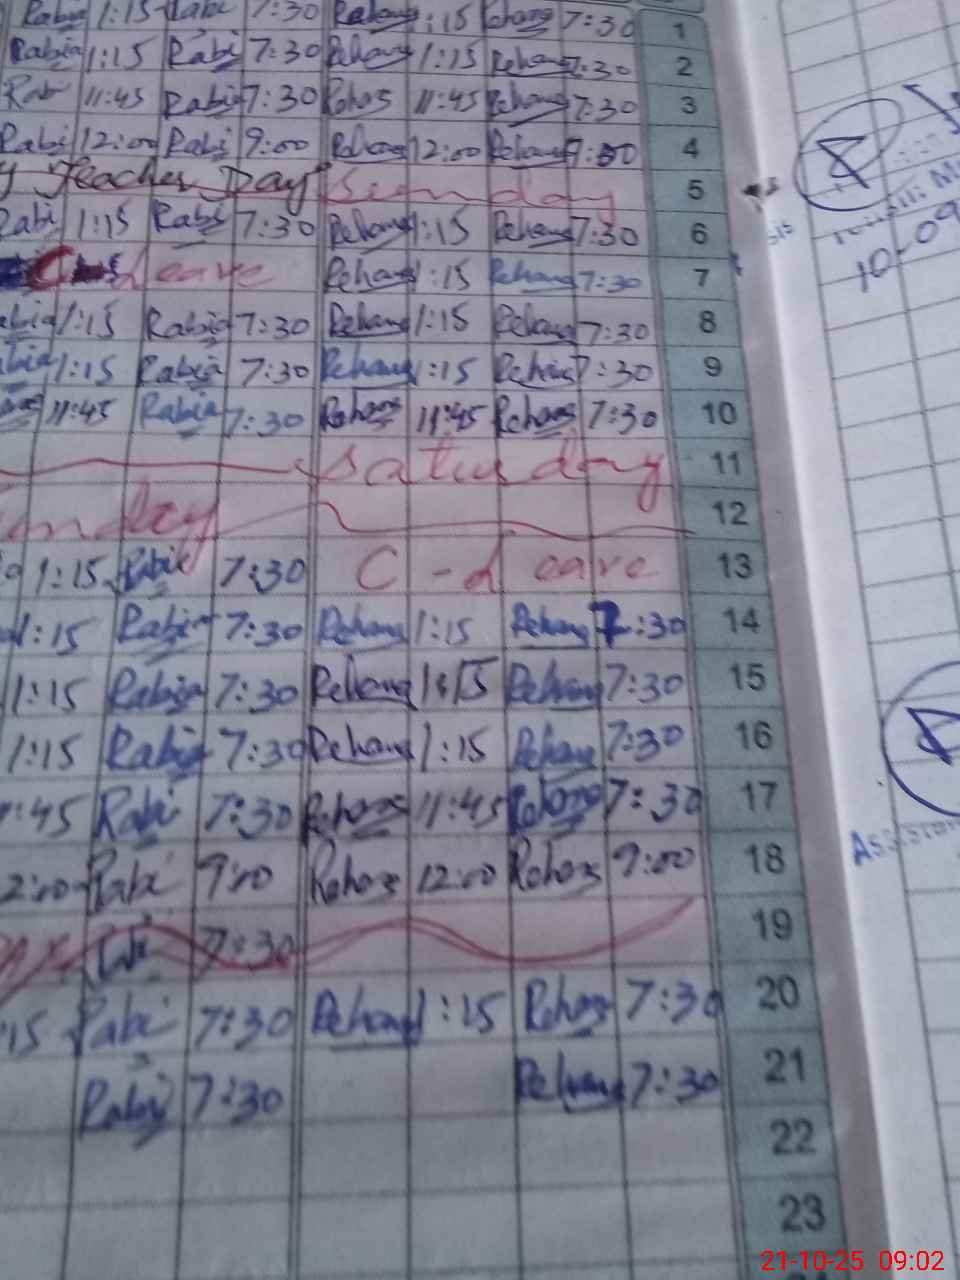 Rabia 1:15 Rabi 7:30 Rehana 1:15 Rehana 7:30 1
Rabia 1:15 Rabi 7:30 Rehana 1:15 Rehana 7:30 2
Rabi 11:45 Rabia 7:30 Rehana 11:45 Rehana 7:30 3
Rabi 12:00 Rabi 9:00 Rehana 12:00 Rehana 4
Teacher Day Sunday 5
Rabi 1:15 Rabi 7:30 Rehana 1:15 Rehana 7:30 6
C-Leave Rehana 1:15 Rehana 7:30 7
1:15 Rabia 7:30 Rehana 1:15 Rehana 7:30 8
1:15 Rabia 7:30 Rehana 1:15 Rehana 7:30 9
11:45 Rabia 7:30 Rehana 11:45 Rehana 7:30 10
Saturday 11
12
1:15 Rabia 7:30 C-Leave 13
1:15 Rabia 7:30 Rehana 1:15 Rehana 7:30 14
1:15 Rabia 7:30 Rehana 1:15 Rehana 7:30 15
1:15 Rabia 7:30 Rehana 1:15 Rehana 7:30 16
:45 Rabi 7:30 Rehana 11:45 Rehana 7:30 17
2:00 Rabi 9:00 Rehana 12:00 Rehana 9:00 18
7:30 19
:15 Rabi 7:30 Rehana 1:15 Rehana 7:30 20
Rabia 7:30 Rehana 7:30 21
22
23
10-09
21-10-25 09:02